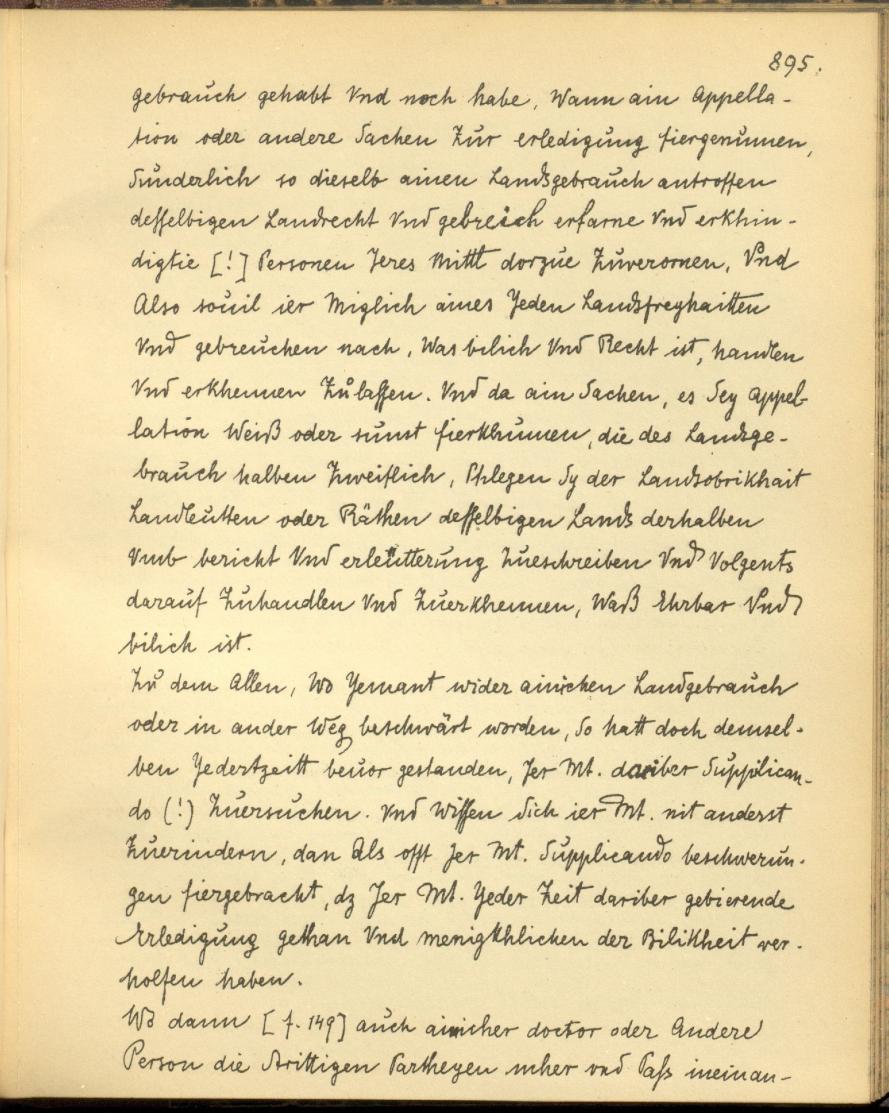 895.
gebrauch gehabt Vnd noch habe, Wann ain Appella-
tion oder andere Sachen Zur erledigung fiergenumen,
Sunderlich so dieselb ainen Landsgebrauch antroffen
desselbigen Landrecht Vnd gebreich erfarne Vnd erkhin-
digtie [!] Personen Jeres Mittl dorzue Zuverornen, Vnd
Also souil ier Miglich aines Jeden Landsfreyhaitten
Vnd gebreuchen nach, Was bilich Vnd Recht ist, handlen
Vnd erkhennen Zulassen. Vnd da ain Sachen, es Sey Appel-
lation Weiß oder sunst fierkhumen, die des Landsge-
brauch halben Zweiflich, Phlegen Sy der Landsobrikhait
Landleutten oder Räthen desselbigen Lands derhalben
Vmb bericht Vnd erleütterung Zueschreiben Vnd Volgents
darauf Zuhandlen Vnd Zuerkhennen, Waß Ehrbar Vnd
bilich ist.
Zu dem Allen, Wo Yemant wider ainichen Landgebrauch
oder in ander Weg beschwärt worden, So hatt doch demsel-
ben Yedertzeitt beuor gestanden, Jer Mt. dariber Supplican-
do (!) Zuersuchen. Vnd Wissen Sich ier Mt. nit anderst
Zuerindern, dan Als offt Jer Mt. Supplicando beschwerun-
gen fiergebracht, dz Jer Mt. Yeder Zeit dariber gebierende
Erledigung gethan Vnd menigkhlichen der Bilikheit ver-
holfen haben.
Wo dann [f. 149] auch ainicher doctor oder Andere
Person die Strittigen Partheyen mher vnd Pass ineinan-